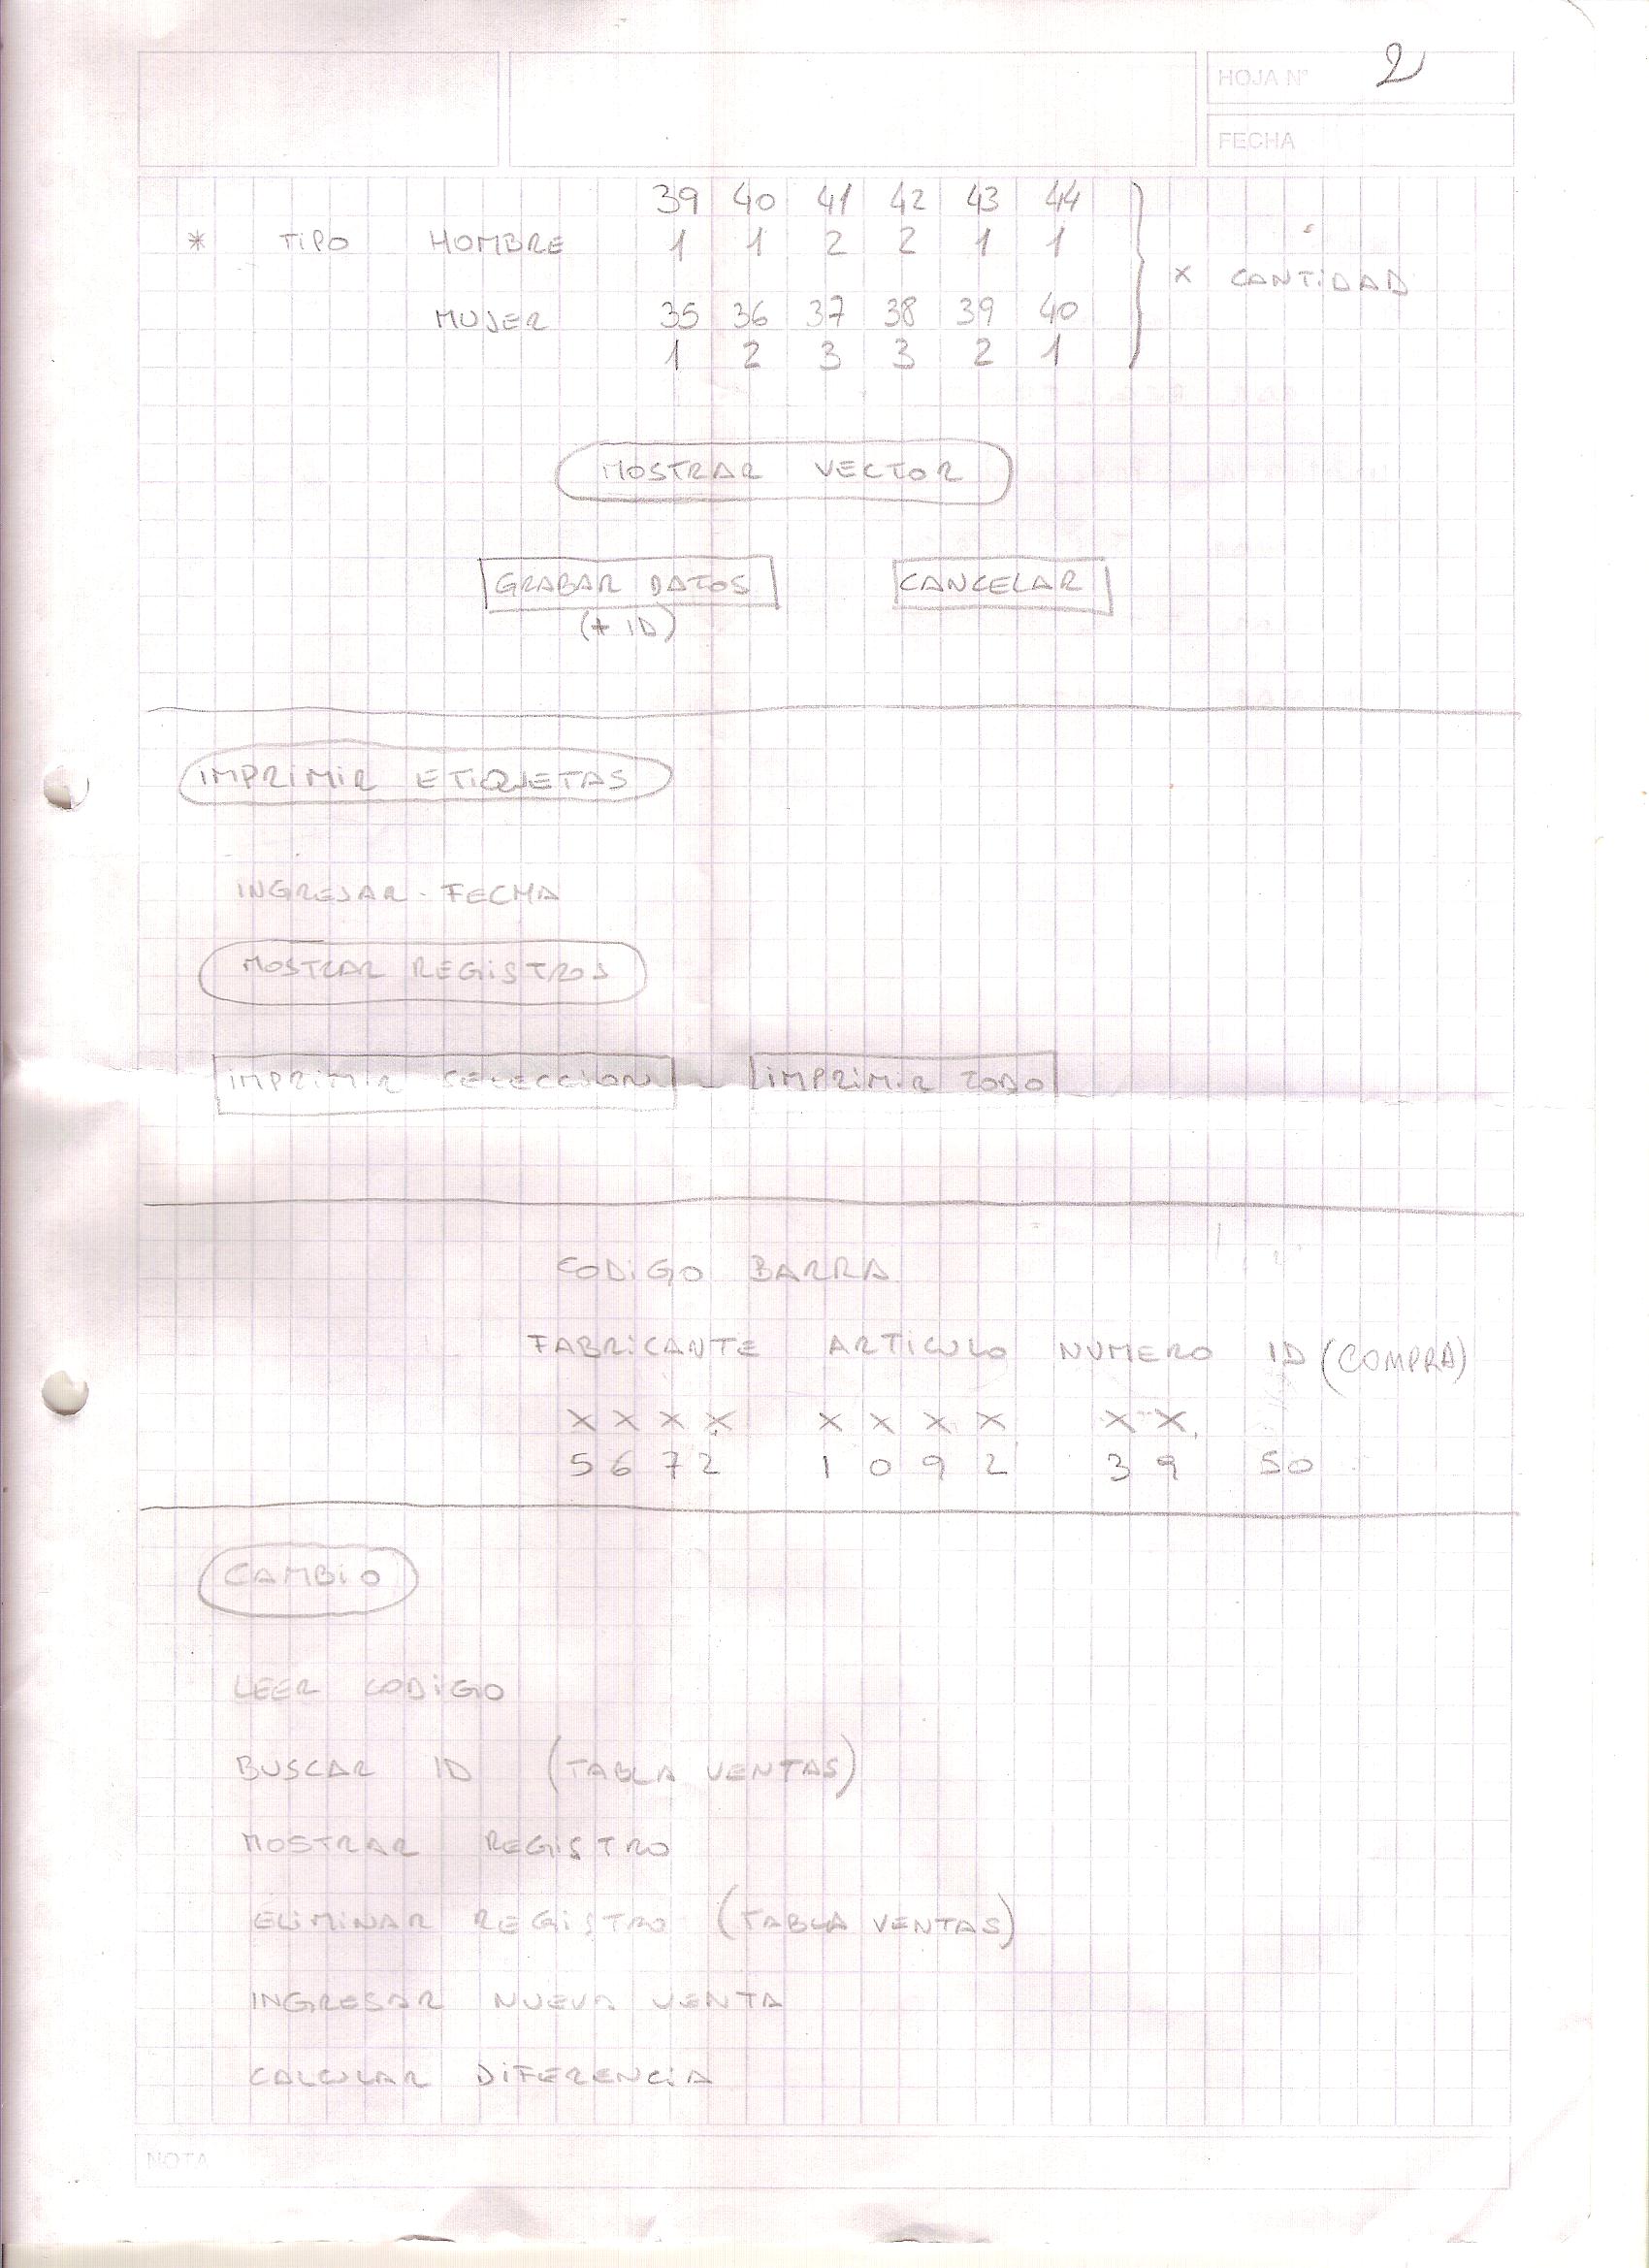 HOJA Nº 2
FECHA
39 40 41 42 43 44
* TIPO HOMBRE 1 1 2 2 1 1
x CANTIDAD
MUJER 35 36 37 38 39 40
1 2 3 3 2 1
MOSTRAR VECTOR
GRABAR DATOS CANCELAR
(+ ID)
IMPRIMIR ETIQUETAS
INGRESAR FECHA
MOSTRAR REGISTROS
IMPRIMIR SELECCION - IMPRIMIR TODO
CODIGO BARRA
FABRICANTE ARTICULO NUMERO ID (COMPRA)
X X X X X X X X X X
5 6 7 2 1 0 9 2 3 9 50
CAMBIO
LEER CODIGO
BUSCAR ID (TABLA VENTAS)
MOSTRAR REGISTRO
ELIMINAR REGISTRO (TABLA VENTAS)
INGRESAR NUEVA VENTA
CALCULAR DIFERENCIA
NOTA